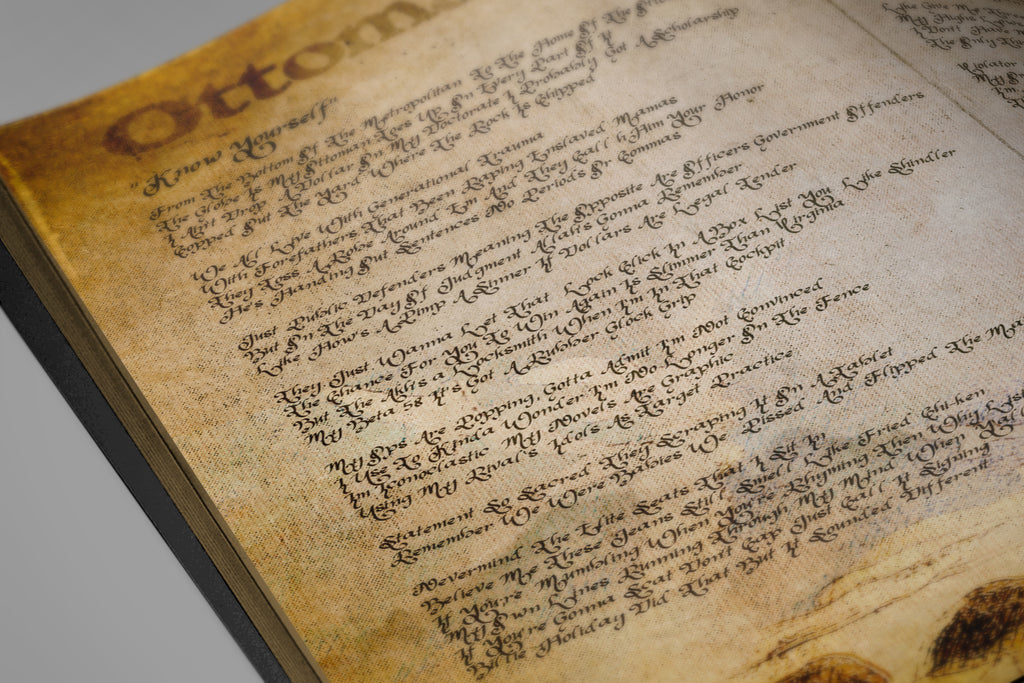 Ottoma
"Know Yourself"
From The Bottom Of The Metropolitan To The Home Of The
The Globe Is My Ottoman Toes Up On Every Part Of It
I Aint Drop A Dollar On My Doctorate I Probably Got A Scholarship
Copped Out The Yard Where The Rock Is Chipped
We All Live With Generational Trauma
With Forefathers That Been Raping Enslaved Mamas
They Toss A Robe Around Em And They Call Him Your Honor
He's Handing Out Sentences No Periods Or Commas
Just Public Defenders Meaning The Opposite Are Officers Government Offenders
But On The Day Of Judgment Allah's Gonna Remember
Like How's A Pimp A Sinner If Dollars Are Legal Tender
They Just Wanna Let That Lock Click In A Box List You Like Shindler
The Chance For You To Win Again Is Slimmer Than Virginia
But The Akits a Locksmith When I'm In That Cockpit
My Beta 58 It's Got A Rubber Glock Grip
My Ops Are Popping, Gotta Admit I'm Not Convinced
I Use To Kinda Wonder I'm No Longer On The Fence
I'm Iconoclastic My Novels Are Graphic
Using My Rival's Idols As Target Practice
Statement So Sacred They Scraping It On A Tablet
Remember We Were Babies We Pissed And Flipped The
Nevermind The Elite Seats That I Sit In
Believe Me These Jeans Still Smell Like Fried Chicken
If You're Mumbling When You're Rhyming Then Why
My Own Lines Running Through My Mind When
If You're Gonna Scat Don't Cap Just Call It Signing
Billie Holiday Did That But It Sounded Different
Like Give Me
My
I Don't Have
The Only
Violator
My